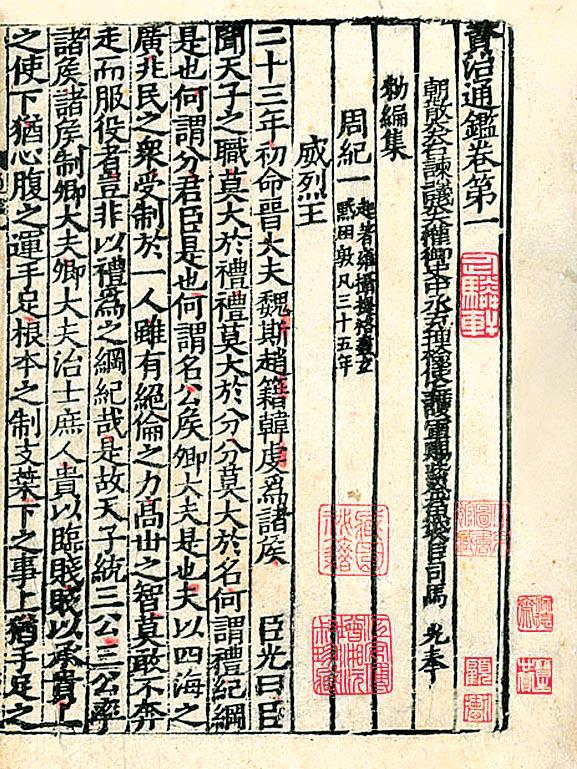 資治通鑑卷第一
朝散大夫右諫議大夫權御史中丞充理檢使上護軍賜紫金魚袋臣司馬 光奉
勑編集
周紀一 起著雍攝提格盡玄黓困敦凡三十五年
威烈王
二十三年初命晉大夫魏斯趙籍韓虔爲諸侯 臣光曰臣
聞天子之職莫大於禮禮莫大於分分莫大於名何謂禮紀綱
是也何謂分君臣是也何謂名公侯卿大夫是也夫以四海之
廣兆民之衆受制於一人雖有絕倫之力髙丗之智莫敢不奔
走而服役者豈非以禮爲之綱紀哉是故天子統三公三公率
諸侯諸侯制卿大夫卿大夫治士庶人貴以臨賤賤以承貴上
之使下猶心腹之運手足根本之制支葉下之事上猶手足之